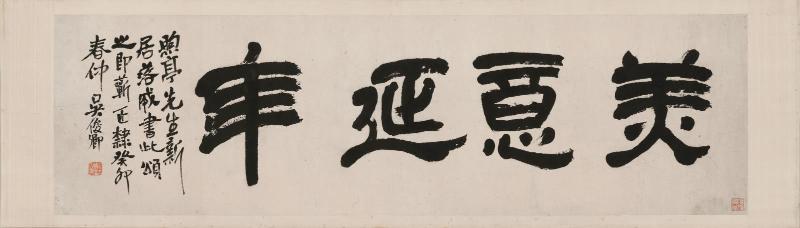 美意延年
煦亭先生新
居落成書此頌
之即蘄正隸癸卯
春仲吳俊卿